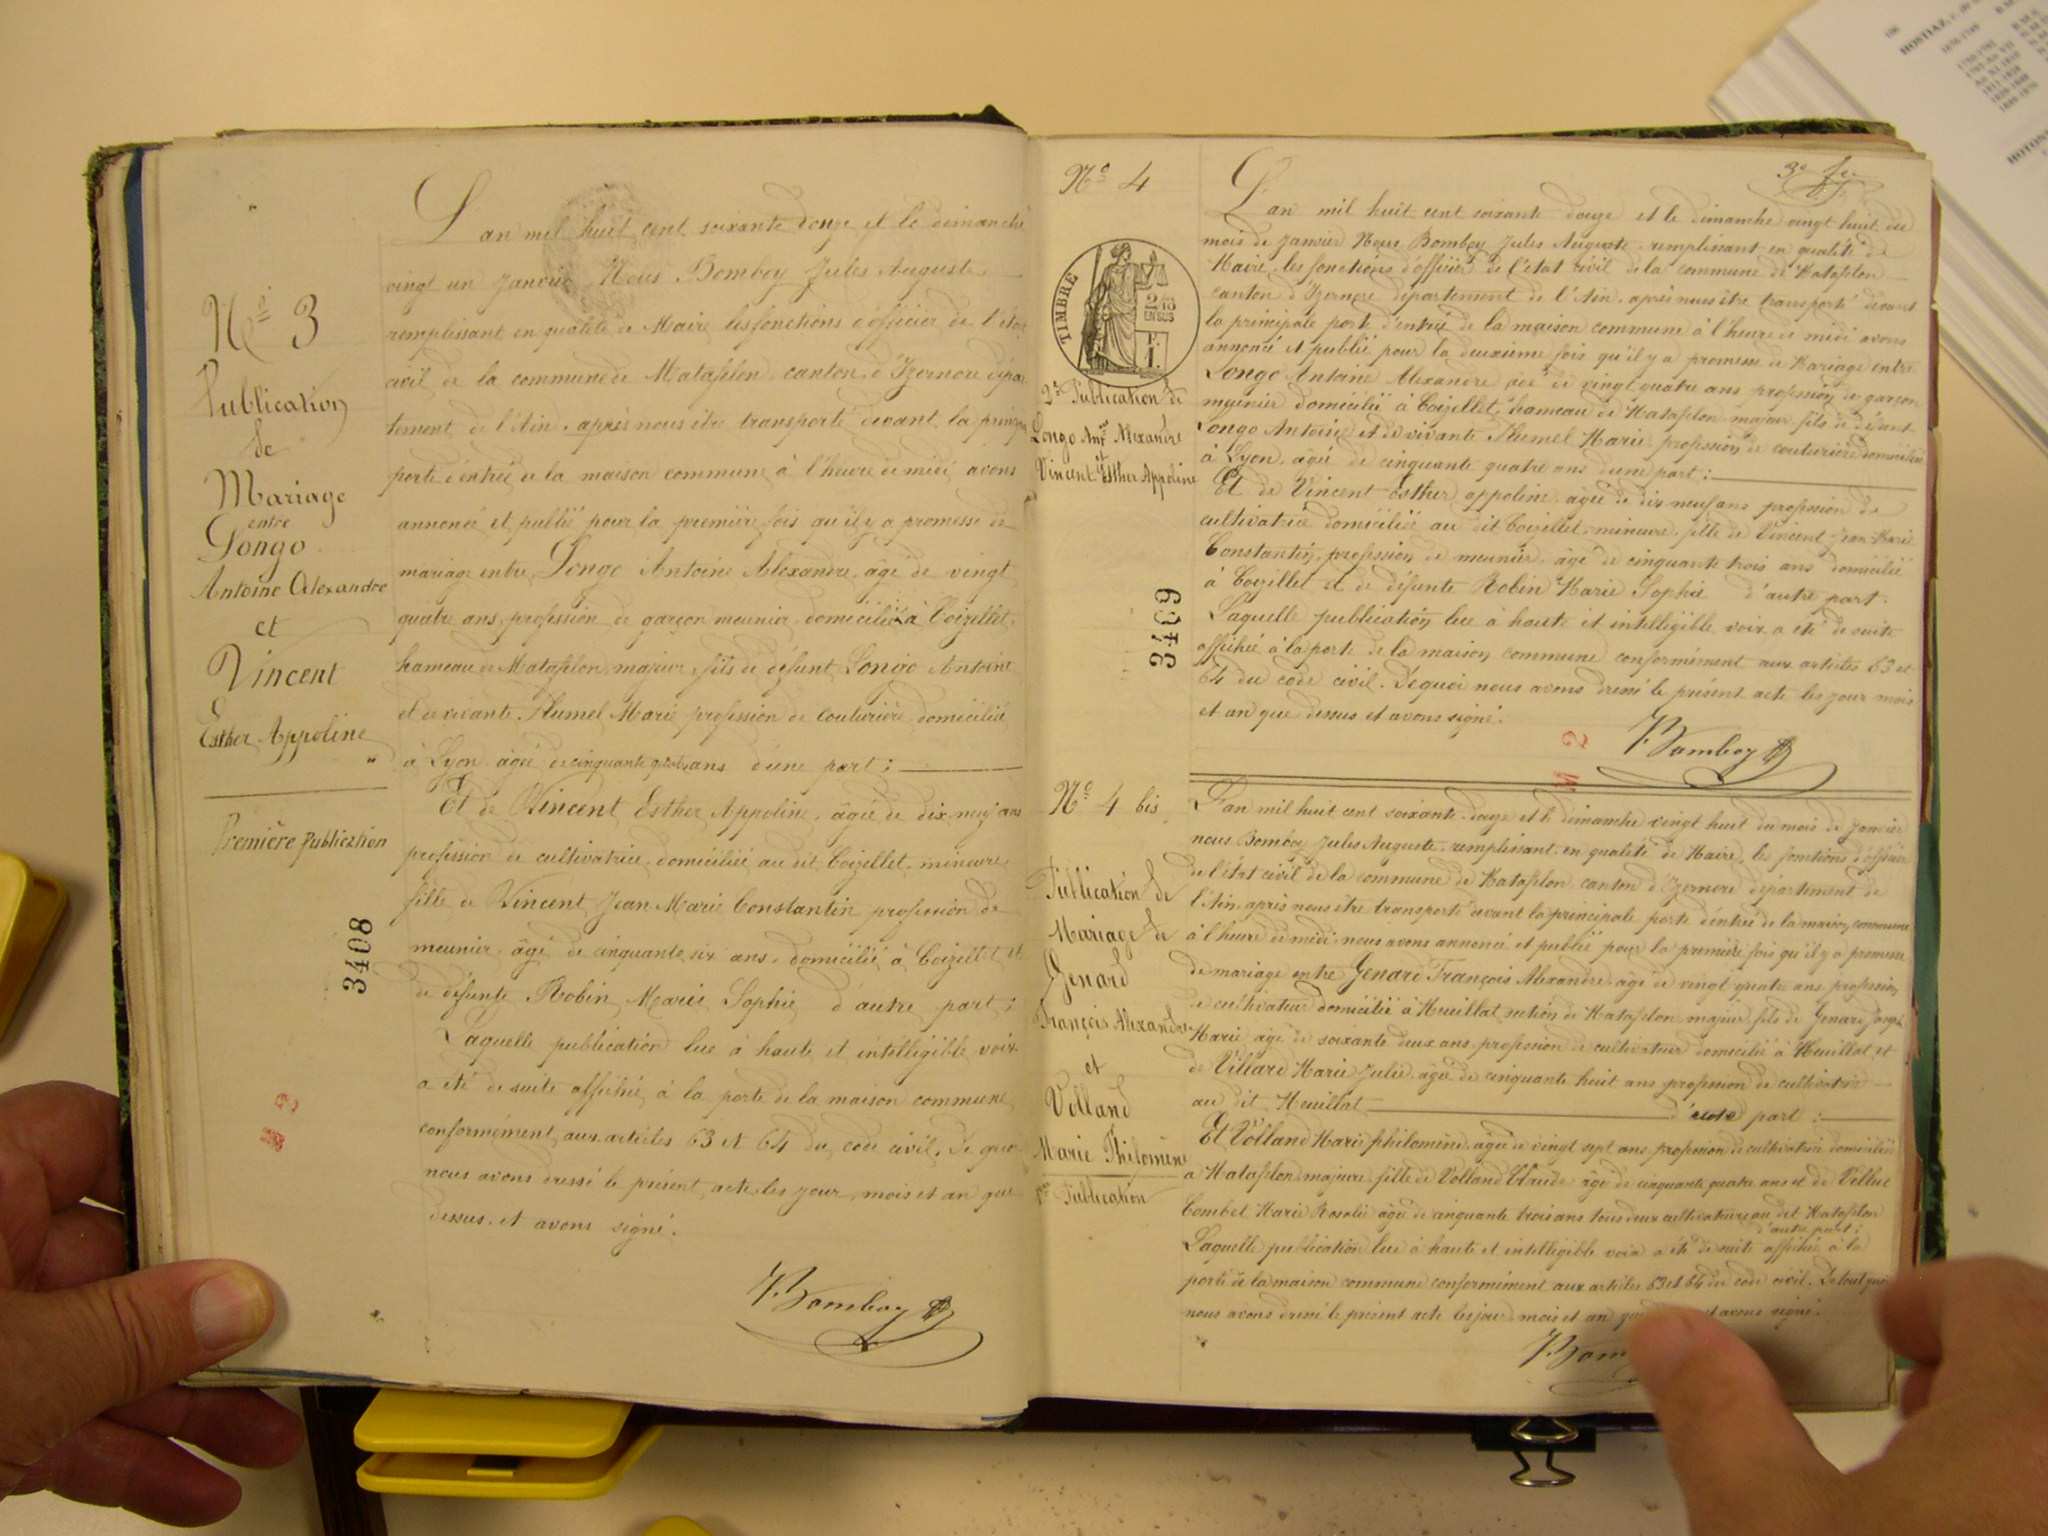 N° 3
Publication
de
Mariage
entre
Longo
Antoine Alexandre
et
Vincent
Esther Appoline
Première Publication
3408
L'an mil huit cent soixante douze et le dimanche
vingt un Janvier Nous Bomboy Jules Auguste
remplissant en qualité de Maire les fonctions d'officier de l'état
civil de la commune de Matafelon canton d'Izernore dépar
tement de l'Ain, après nous être transporté devant la
porte d'entrée de la maison commune à l'heure de midi avons
annoncé et publié pour la première fois qu'il y a promesse de
mariage entre Longo Antoine Alexandre, âgé de vingt
quatre ans, profession de garçon meunier domicilié à Coizellet,
hameau de Matafelon, majeur, fils de défunt Longo Antoine
et de vivante Humel Marie profession de couturière domiciliée
à Lyon âgée de cinquante quatre ans d'une part ;
Et de Vincent Esther Appoline, âgée de dix neuf ans
profession de cultivatrice domiciliée au dit Coizellet, mineure
fille de Vincent Jean Marie Constantin profession de
meunier âgé de cinquante six ans, domicilié à Coizellet et
de défunte Robin Marie Sophie d'autre part ;
Laquelle publication lue à haute et intelligible voix
a été de suite affichée à la porte de la maison commune
conformément aux articles 63 et 64 du code civil. De quoi
nous avons dressé le présent acte les jour, mois et an que
dessus et avons signé.
Bomboy
3e
N° 4
TIMBRE
2/10
EN SUS
F.
1.
2e Publication de
Longo Ant. Alexandre
et
Vincent Esther Appoline
3409
L'an mil huit cent soixante douze et le dimanche vingt huit du
mois de Janvier Nous Bomboy Jules Auguste remplissant en qualité de
Maire, les fonctions d'officier de l'état civil de la commune de Matafelon
canton d'Izernore département de l'Ain, après nous être transporté devant
la principale porte d'entrée de la maison commune à l'heure de midi avons
annoncé et publié pour la deuxième fois qu'il y a promesse de Mariage entre
Longo Antoine Alexandre âgé de vingt quatre ans profession de garçon
meunier domicilié à Coizellet, hameau de Matafelon majeur fils de défunt
Longo Antoine et de vivante Humel Marie profession de couturière domiciliée
à Lyon, âgée de cinquante quatre ans d'une part ;
Et de Vincent Esther appoline âgée de dix neuf ans profession de
cultivatrice domiciliée au dit Coizellet, mineure, fille de Vincent Jean Marie
Constantin, profession de meunier âgé de cinquante trois ans domicilié
à Coizellet et de défunte Robin Marie Sophie d'autre part.
Laquelle publication lue à haute et intelligible voix a été de suite
affichée à la porte de la maison commune conformément aux articles 63 et
64 du code civil. De quoi nous avons dressé le présent acte les jour mois
et an que dessus et avons signé.
Bomboy
N° 4 bis
Publication de
Mariage de
Genard
François Alexandre
et
Volland
Marie Philomène
1re Publication
L'an mil huit cent soixante douze et le dimanche vingt huit du mois de Janvier
nous Bomboy Jules Auguste remplissant en qualité de Maire, les fonctions d'officier
de l'état civil de la commune de Matafelon canton d'Izernore département de
l'Ain, après nous être transporté devant la principale porte d'entrée de la maison commune
à l'heure de midi nous avons annoncé et publié pour la première fois qu'il y a promesse
de mariage entre Genard François Alexandre âgé de vingt quatre ans profession
de cultivateur domicilié à Heuillat section de Matafelon majeur, fils de Genard Joseph
Marie âgé de soixante deux ans profession de cultivateur domicilié à Heuillat et
de Villard Marie Julie âgée de cinquante huit ans profession de cultivatrice
au dit Heuillat d'une part ;
Et Volland Marie philomène âgée de vingt sept ans profession de cultivatrice domiciliée
à Matafelon majeure, fille de Volland Claude âgé de cinquante quatre ans et de
Combet Marie Rosalie âgée de cinquante trois ans tous deux cultivateurs au dit Matafelon
d'autre part ;
Laquelle publication lue à haute et intelligible voix a été de suite affichée à la
porte de la maison commune conformément aux articles 63 et 64 du code civil. De tout quoi
nous avons dressé le présent acte les jour mois et an et avons signé.
HOSTIAZ